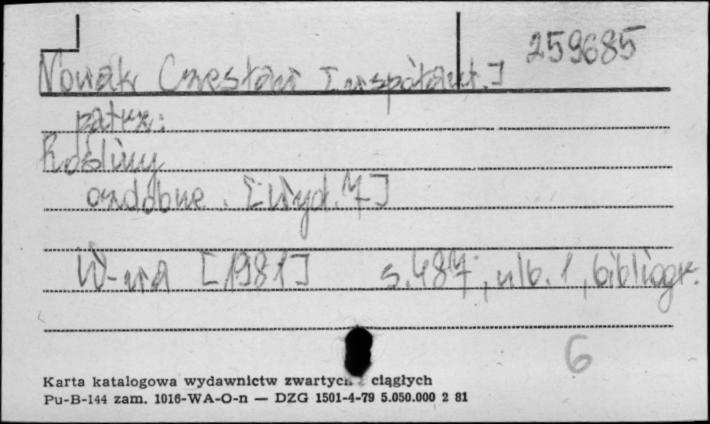 259685
Nowak Czesław [współaut.]
patrz:
Rośliny
ozdobne. [Wyd. 7]
W-wa [1981] s. 487, nlb. 1, bibliogr.
6
Karta katalogowa wydawnictw zwartych i ciągłych
Pu-B-144 zam. 1016-WA-O-n — DZG 1501-4-79 5.050.000 2 81